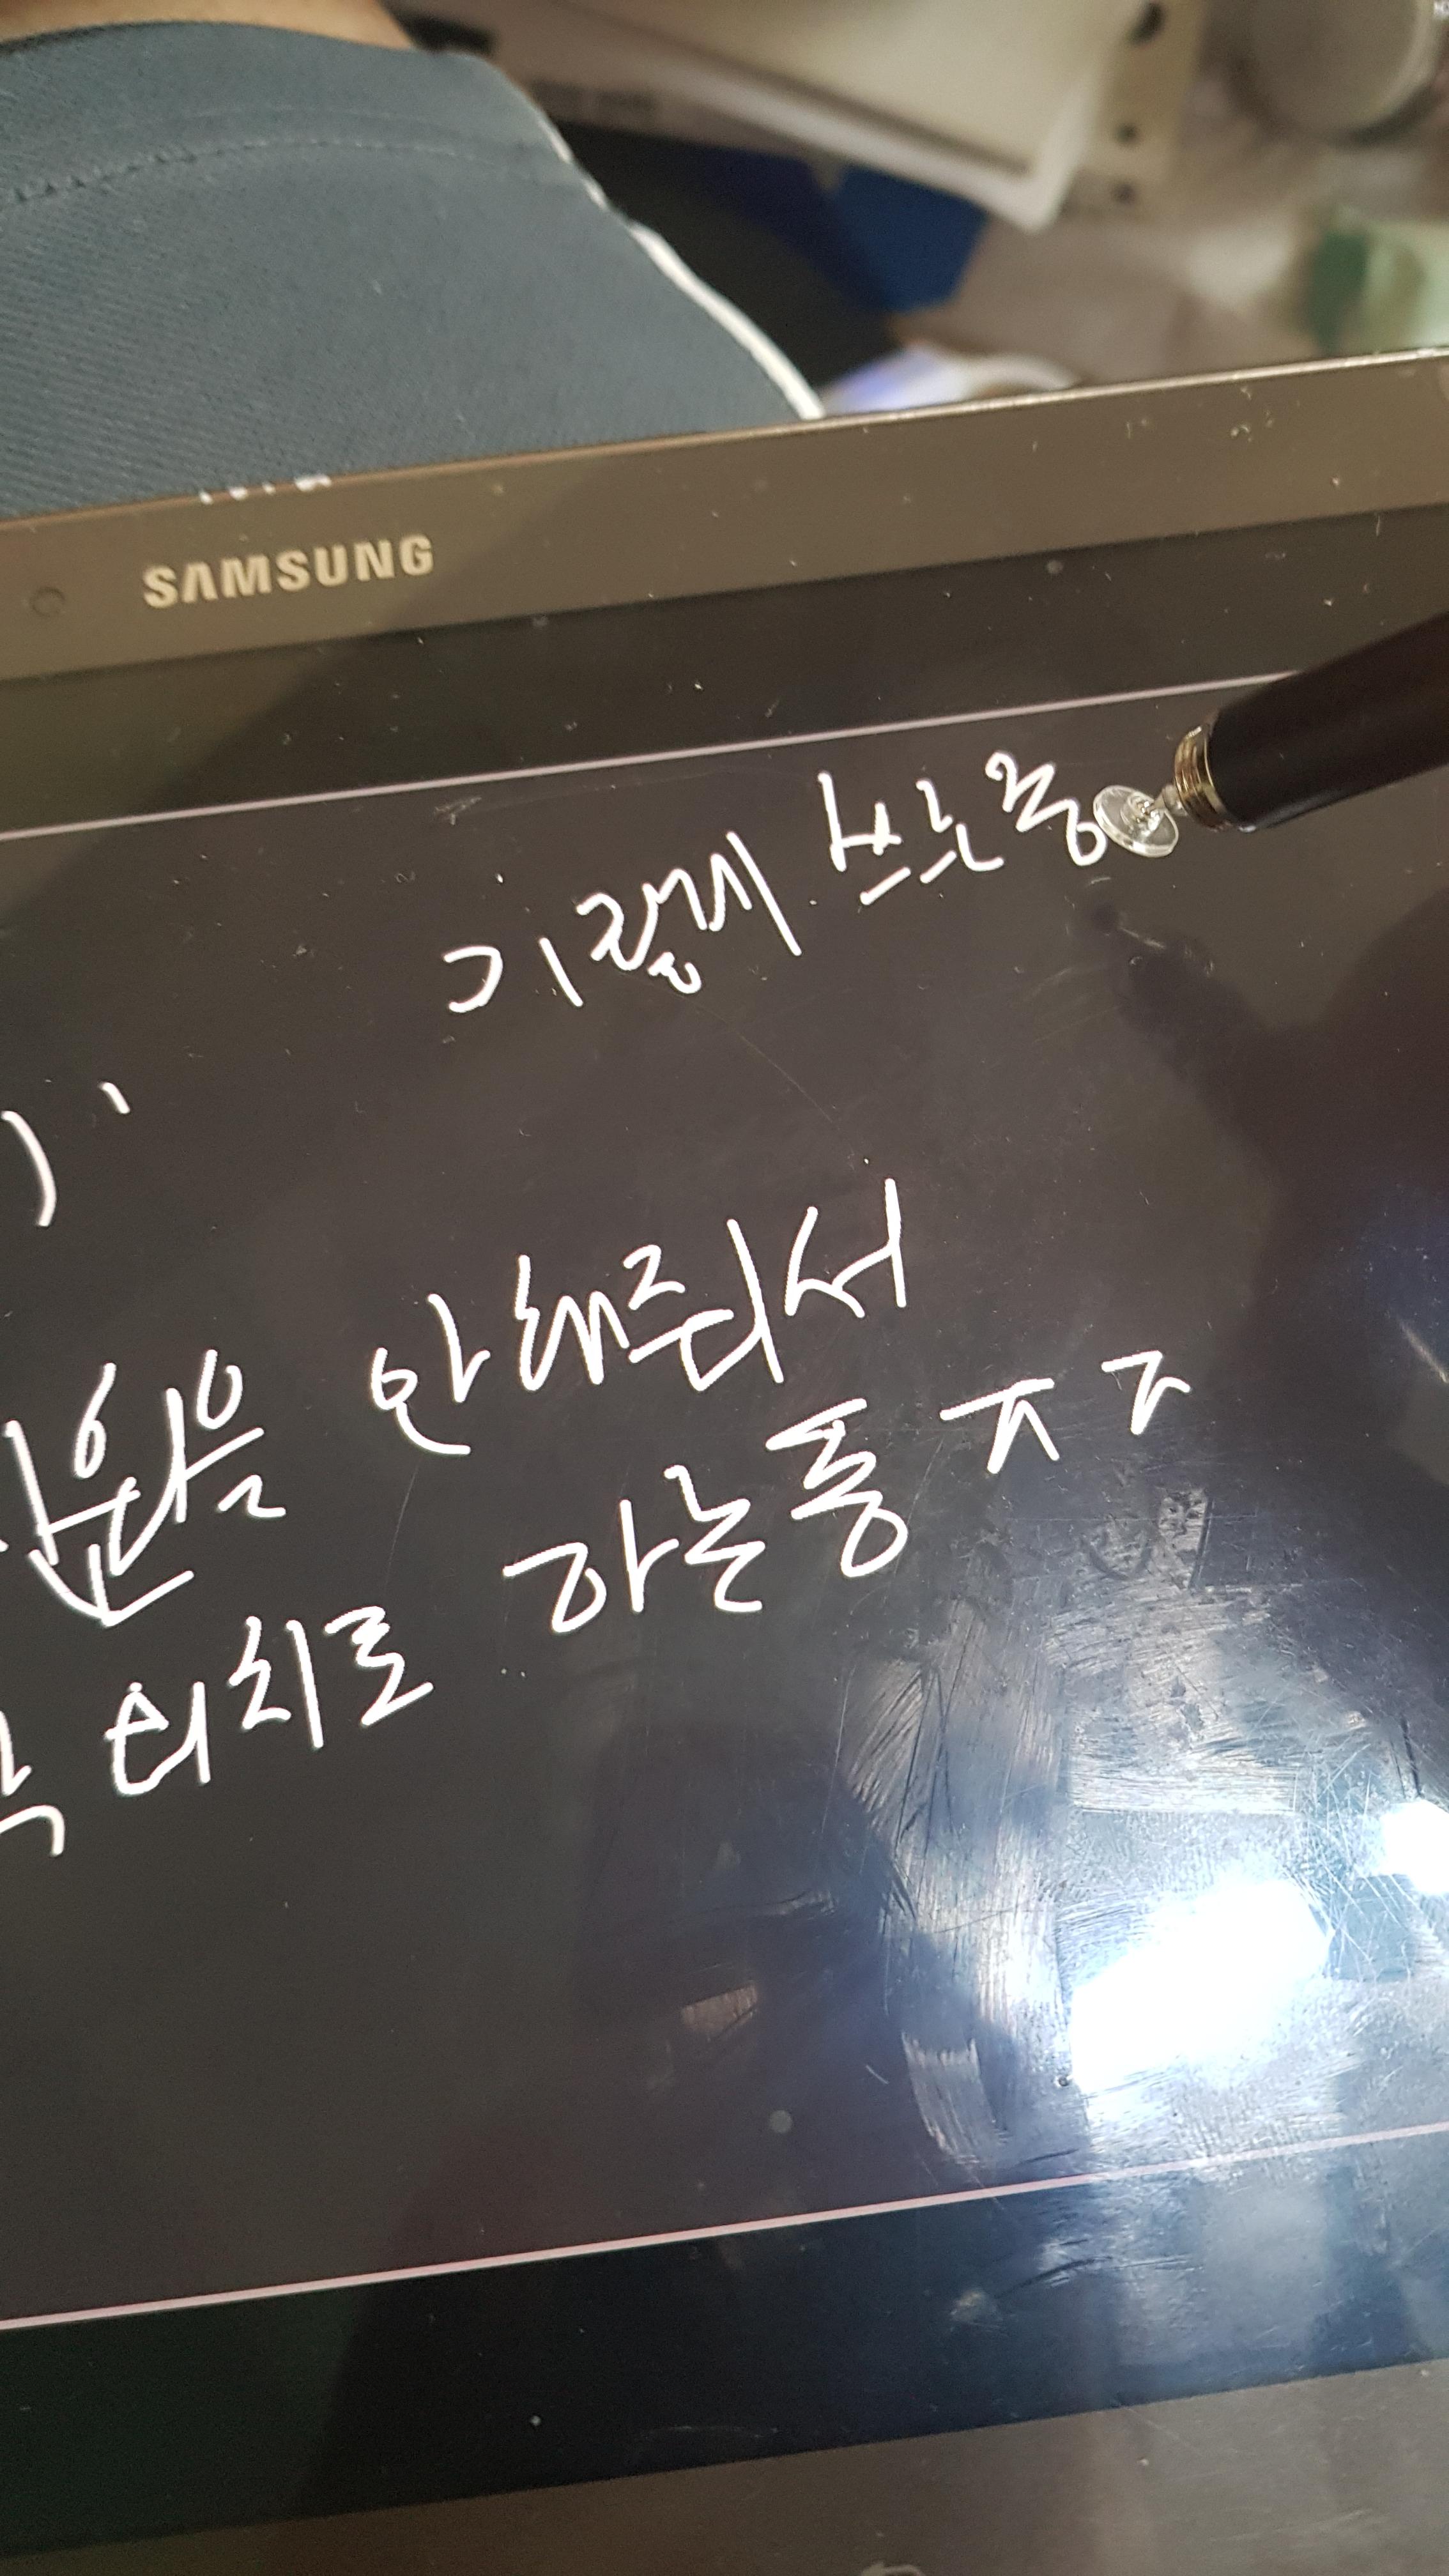 SAMSUNG
기렇게 쓰는중
안해줘서
터치로 하는중 ㅈㅈ